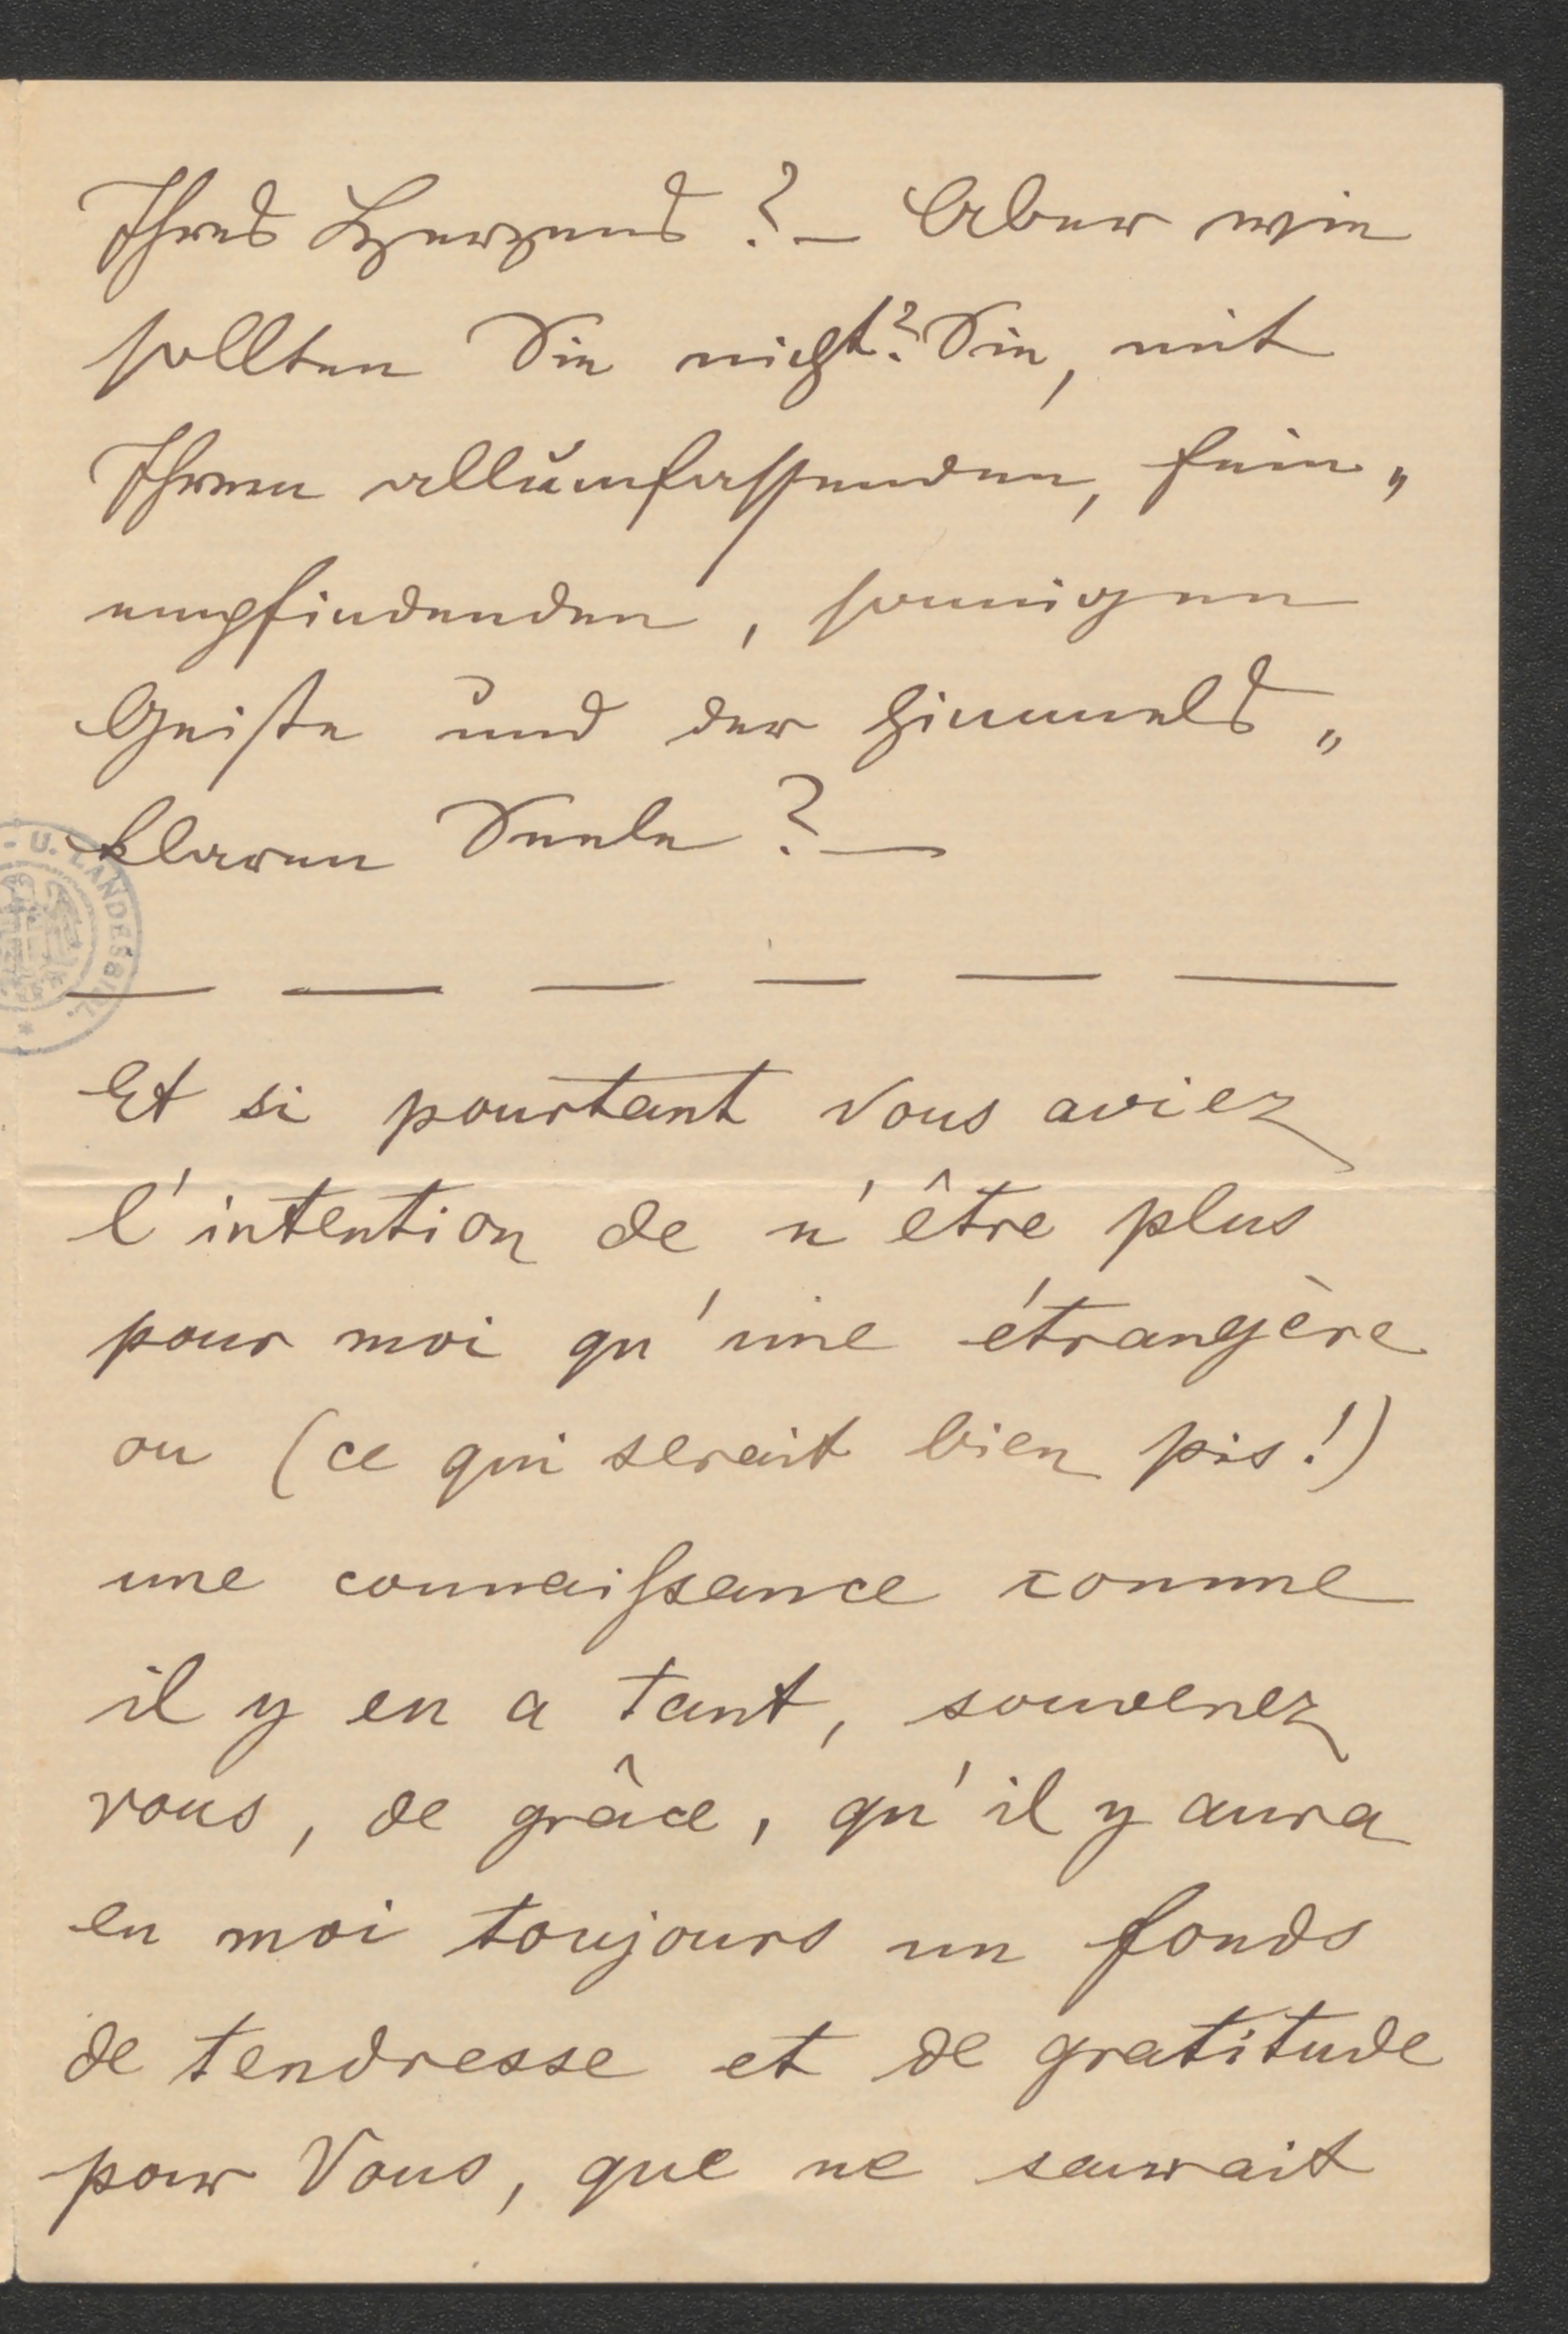 Ihres Herzens ? — Aber wie
sollten Sie nicht? Sie, mit
Ihrem allumfassenden, fein„
empfindenden, sonnigen
Geiste und der himmels„
klaren Seele ? —
— — — — — —
U. LANDESBIBL.
Et si pourtant Vous aviez
l'intention de n'être plus
pour moi qu'une étrangère
ou (ce qui serait bien pis!)
une connaiſsance comme
il y en a tant, souvenez
vous, de grâce, qu'il y aura
en moi toujours un fonds
de tendresse et de gratitude
pour Vous, que ne saurait